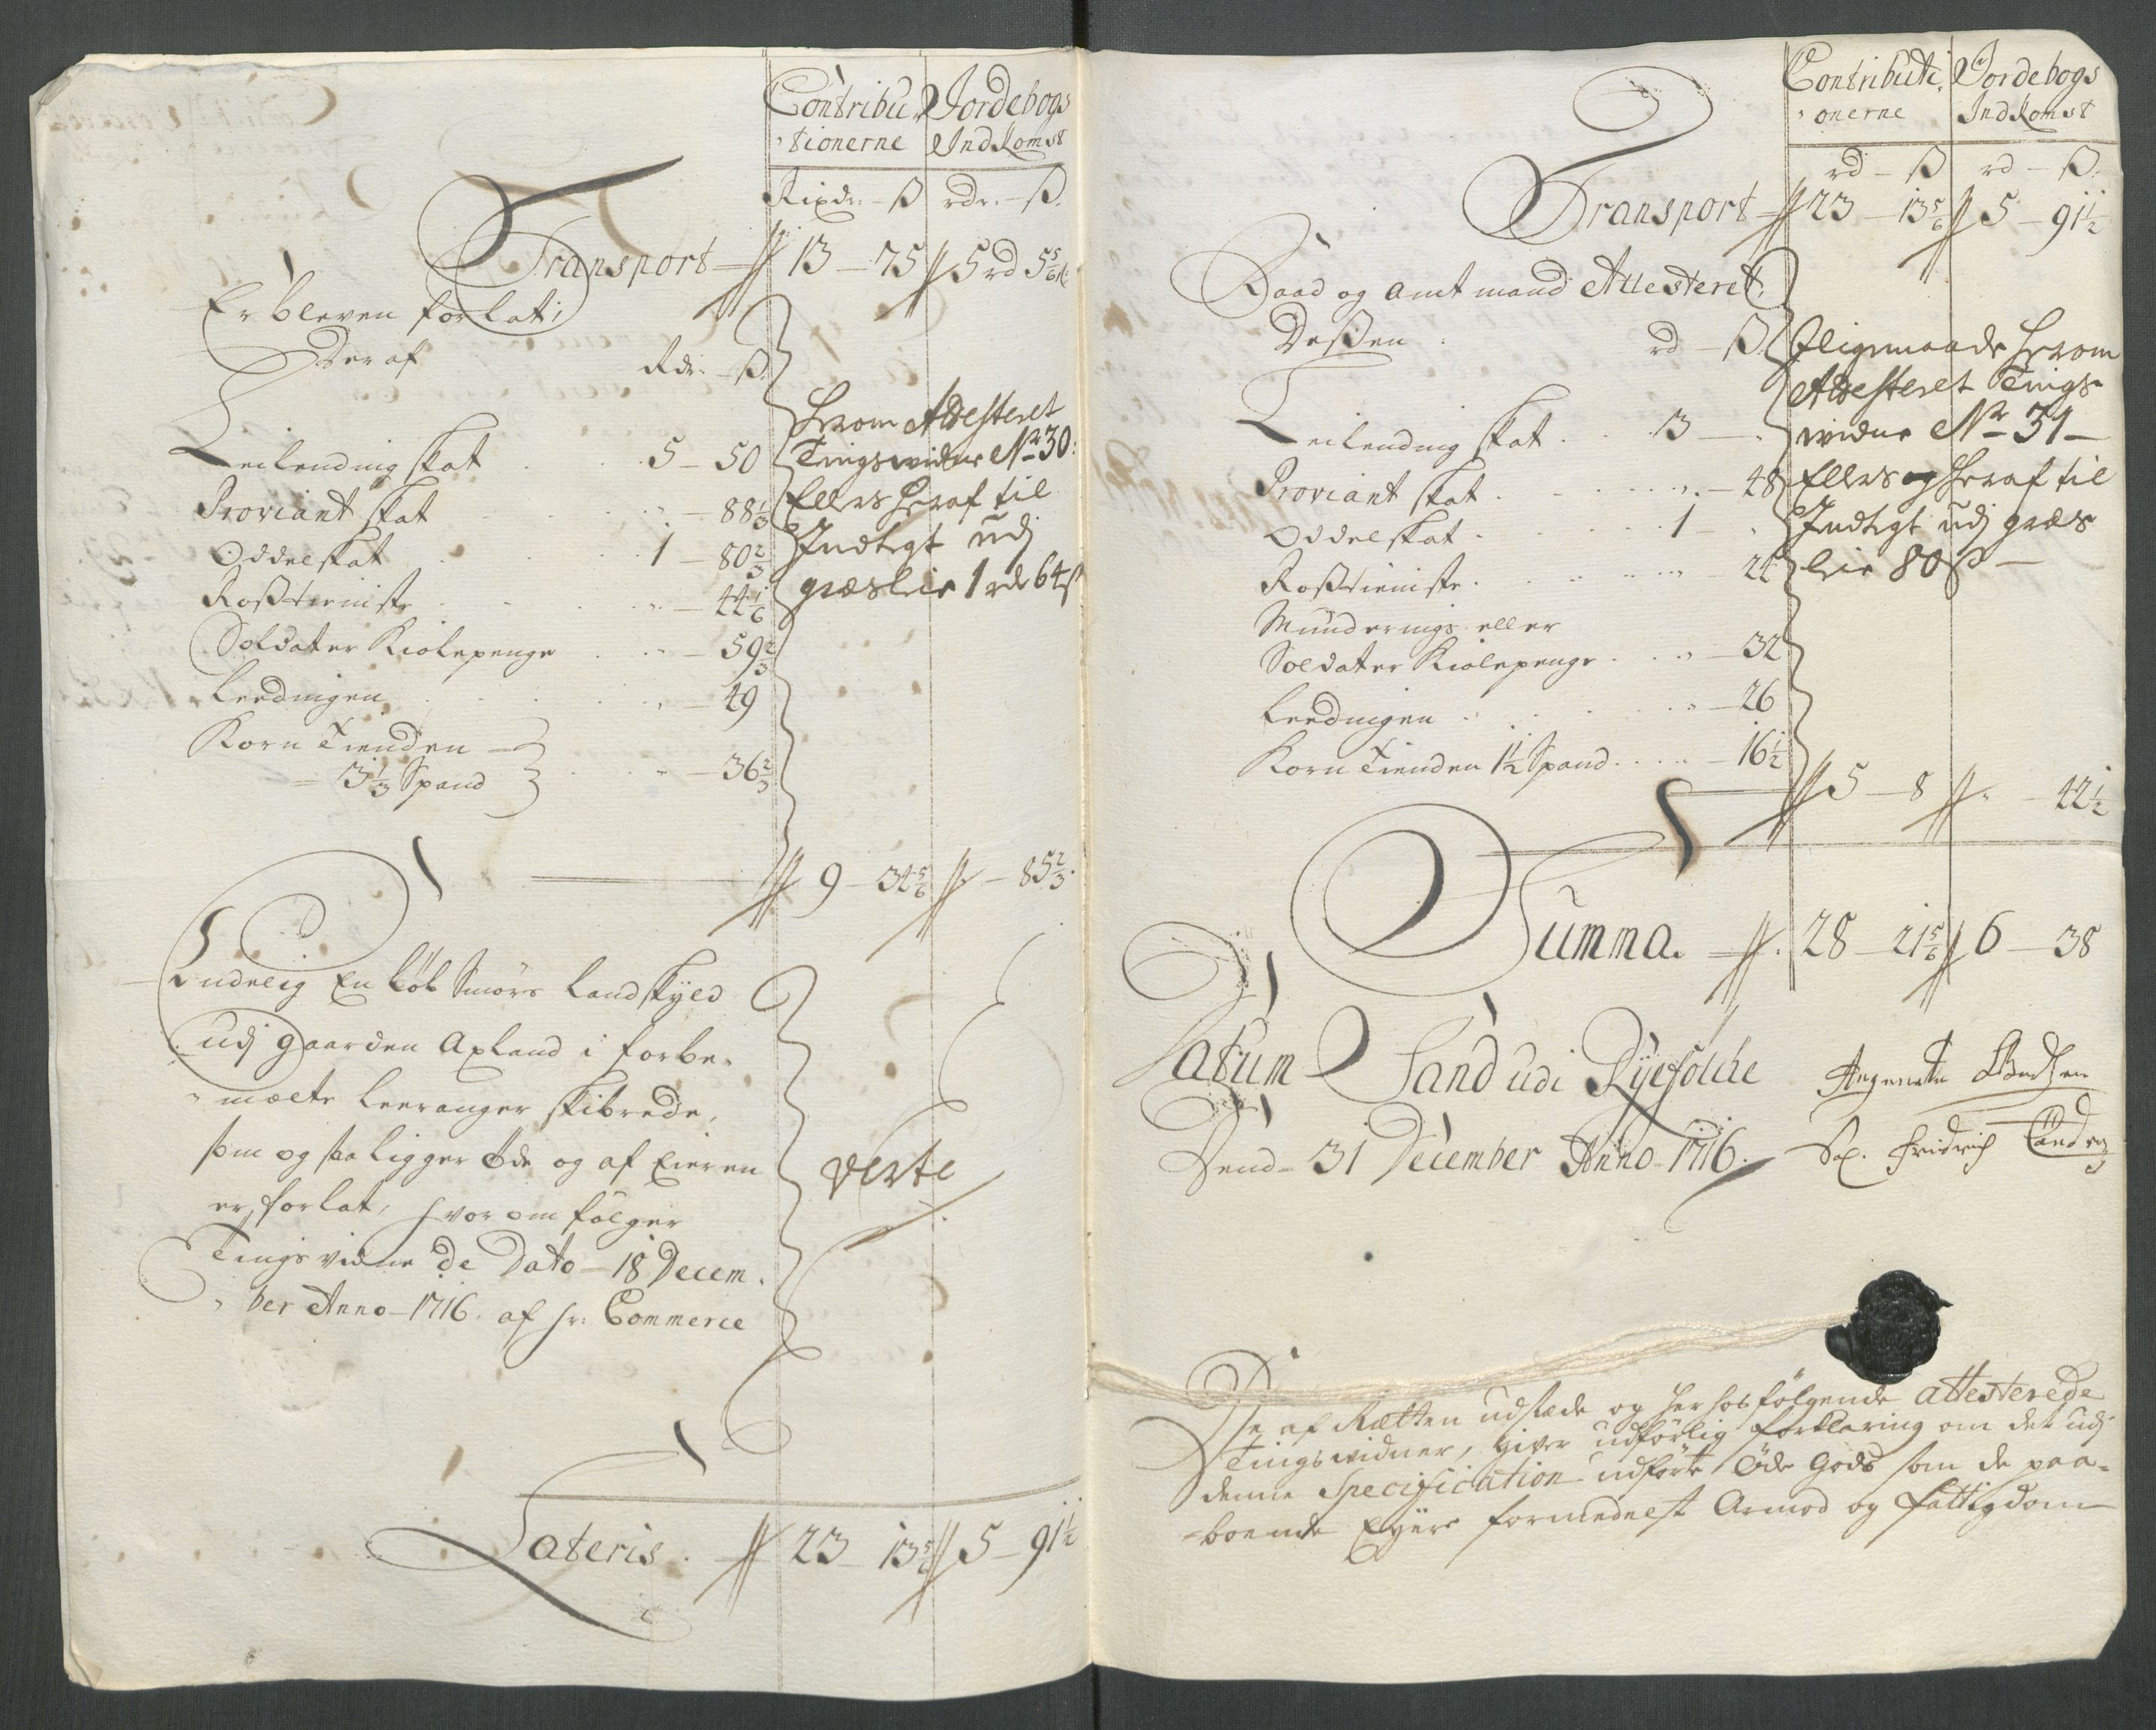 Contribu- Jordebogs
tionerne Indkomst
Rixdr: – ß rdr. – ß.
Transport – 13 – 75 5 rd 5 5/6 ß
Er bleven forlat;
Deraf Rdr: ß.
Leilending skat 5 – 50
Proviant skat " – 88 1/3
Oddelskat 1 – 80 2/3
Roßtieniste " – 44 1/6
Soldater Kiolepenge " – 59 2/3
Leedingen " – 49
Korn Tienden
3 1/3 Spand " – 36 2/3
Herom Attesteret
Tingswidne No 30:
Ellers Heraf til
Indtegt udj
græsleie 1 rd 64 ß
9 – 34 5/6 " – 85 2/3
Endelig En Løb Smørs Landskyld
udj gaarden Axland i forbe-
mælte Leeranger skibrede,
som og saa ligger Øde og af Eieren
er forlat, hvorom følger
Tingsvidne de Dato – 18 Decem-
ber Anno – 1716. af hr: Commerce
verte
Lateris. 23 – 13 5/6 5 – 91 1/2
Contributi- Jordebogs
onerne Indkomst
rd – ß rd – ß.
Transport – 23 – 13 5/6 5 – 91 1/2
Raad og Amtmand Attesteret.
Deßen rd – ß
Leilending skat 3 – "
Proviant skat " – 48
Oddelskat 1 – "
Roßtieniste " 24
Munderings eller
Soldater Kiolepenge " – 32
Leedingen " – 26
Korn Tienden 1 1/2 Spand " – 16 1/2
Iligemaade herom
Attesteret Tings-
widne No 31 –
Ellers og Heraf til
Indtegt udj græs
leie 80 ß –
5 – 8 " – 42 1/2
Summa. 28 – 21 5/6 6 – 38
Datum Sand udi Ryefölche
Dend – 31 December Anno – 1716.
Fridrich
Dße af Rætten udstæde og herhos følgende attesterede
Tingswidner, giver udførlig forklaring om det udj
denne Specification udførte Øde Gods som de paa-
boende Eyere formedelst Armod og fattigdom